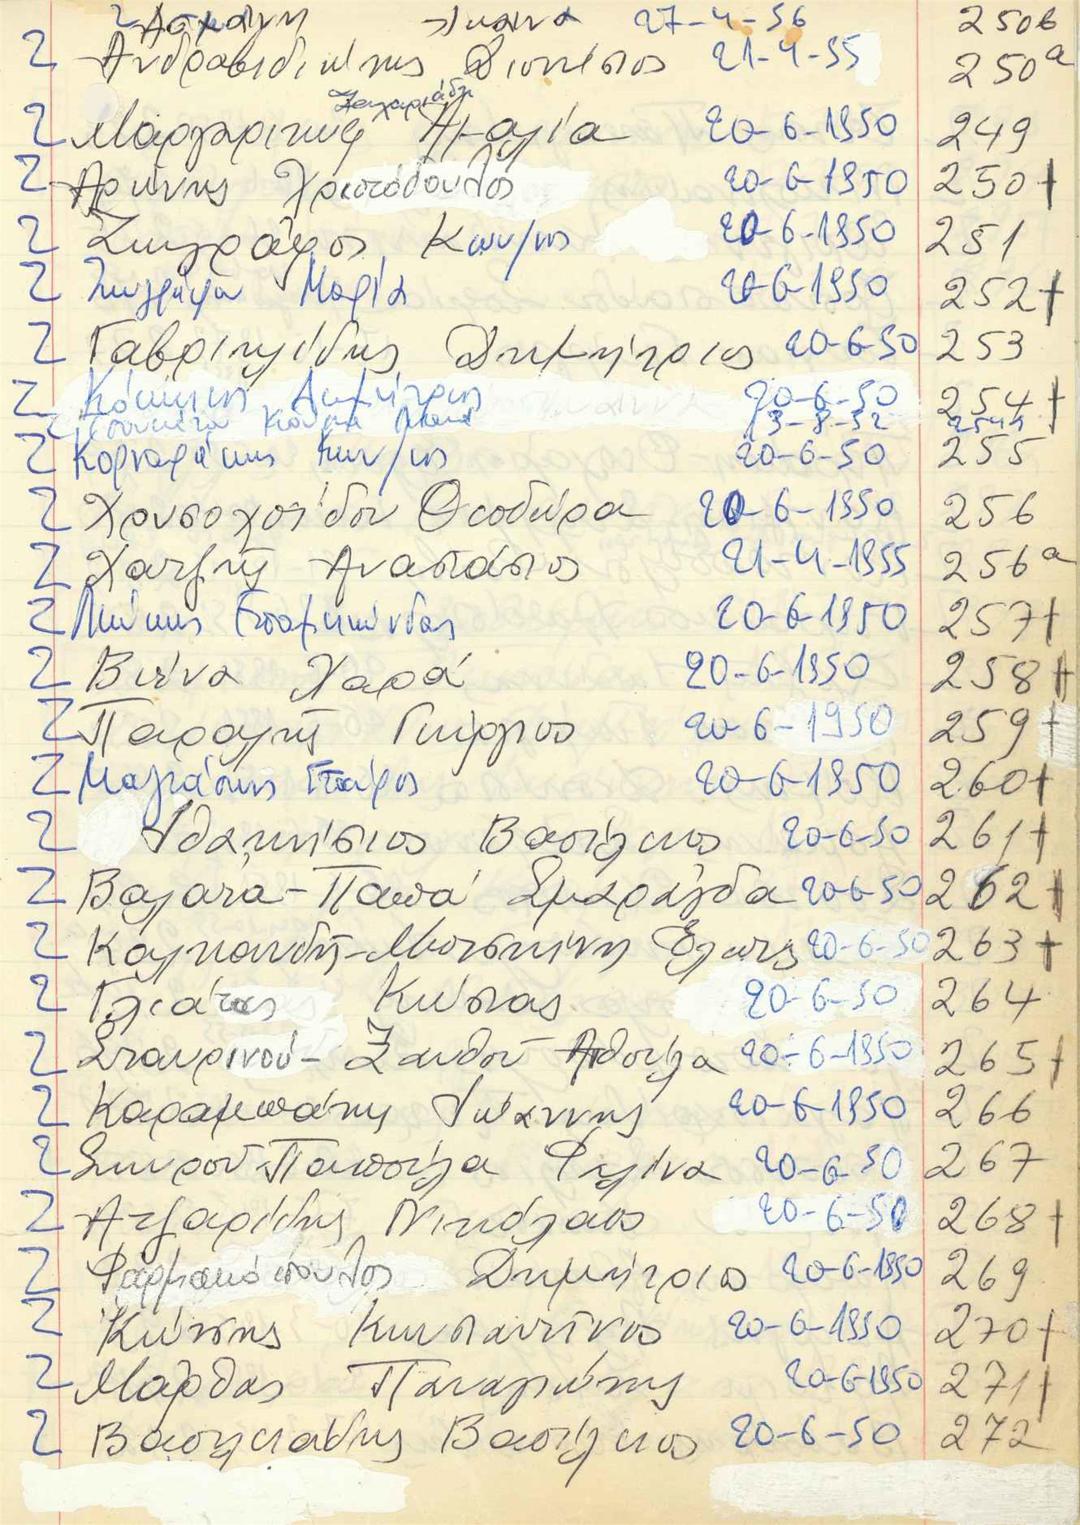 27-4-56 250β
Ανδραβιδιώτης Διονύσιος 21-4-55 250α
Ζαχαριάδη
Αμαλία 20-6-1950 249
Αρώνης Χριστόδουλος 20-6-1950 250+
Ζωγράφος Κων/νος 20-6-1950 251
Ζωγράφου Μαρία 20-6-1950 252+
Γαβριηλίδης Δημήτριος 20-6-50 253
Κόκκινος Δημήτριος 20-6-50 254+
13-8-52
Κορναράκης Κων/νος 20-6-50 255
Χρυσοχοΐδου Θεοδώρα 20-6-1950 256
Χατζής Αναστάσιος 21-4-1955 256α
Λιώκης Επαμεινώνδας 20-6-1950 257+
Βιένα Χαρά 20-6-1950 258+
Παραλής Γεώργιος 20-6-1950 259+
Μαλιάσκας Σπύρος 20-6-1950 260+
Ιθακήσιος Βασίλειος 20-6-50 261+
Βαλατά-Παπά Σμαράγδα 20-6-50 262+
20-6-50 263+
Γλιάτας Κώστας 20-6-50 264
Σταυρινού-Ξανθού Ανθούλα 20-6-1950 265+
Καραμπάτης Ιωάννης 20-6-1950 266
Σκυρού Παππούλα Φιλίνα 20-6-50 267
Ατζαρίτης Νικόλαος 20-6-50 268+
Φαρμακόπουλος Δημήτριος 20-6-1950 269
Κώτσης Κωνσταντίνος 20-6-1950 270+
Μάρθας Παναγιώτης 20-6-1950 271+
Βασιλειάδης Βασίλειος 20-6-50 272